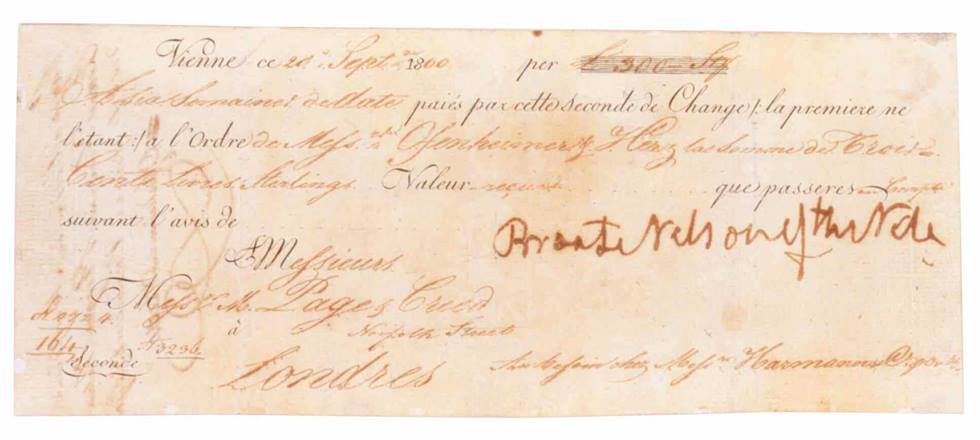 Vienne ce 20 Sept.re 1800 per £ 300 Stg
A Six Semaines de date paiés par cette seconde de Change /: la premiere ne
l'étant :/ a l'Ordre de Mess.rs Ofenheimer & Herz la somme de Trois
Cents Livres Sterlings Valeur reçue que passeres en Compte
suivant l'avis de
Bronte Nelson of the Nile
A Messieurs
Mess.rs M. Page & Creed
à Norfolk Street
Londres
164
N 3236
Seconde
Au besoin chez Mess.rs Harman